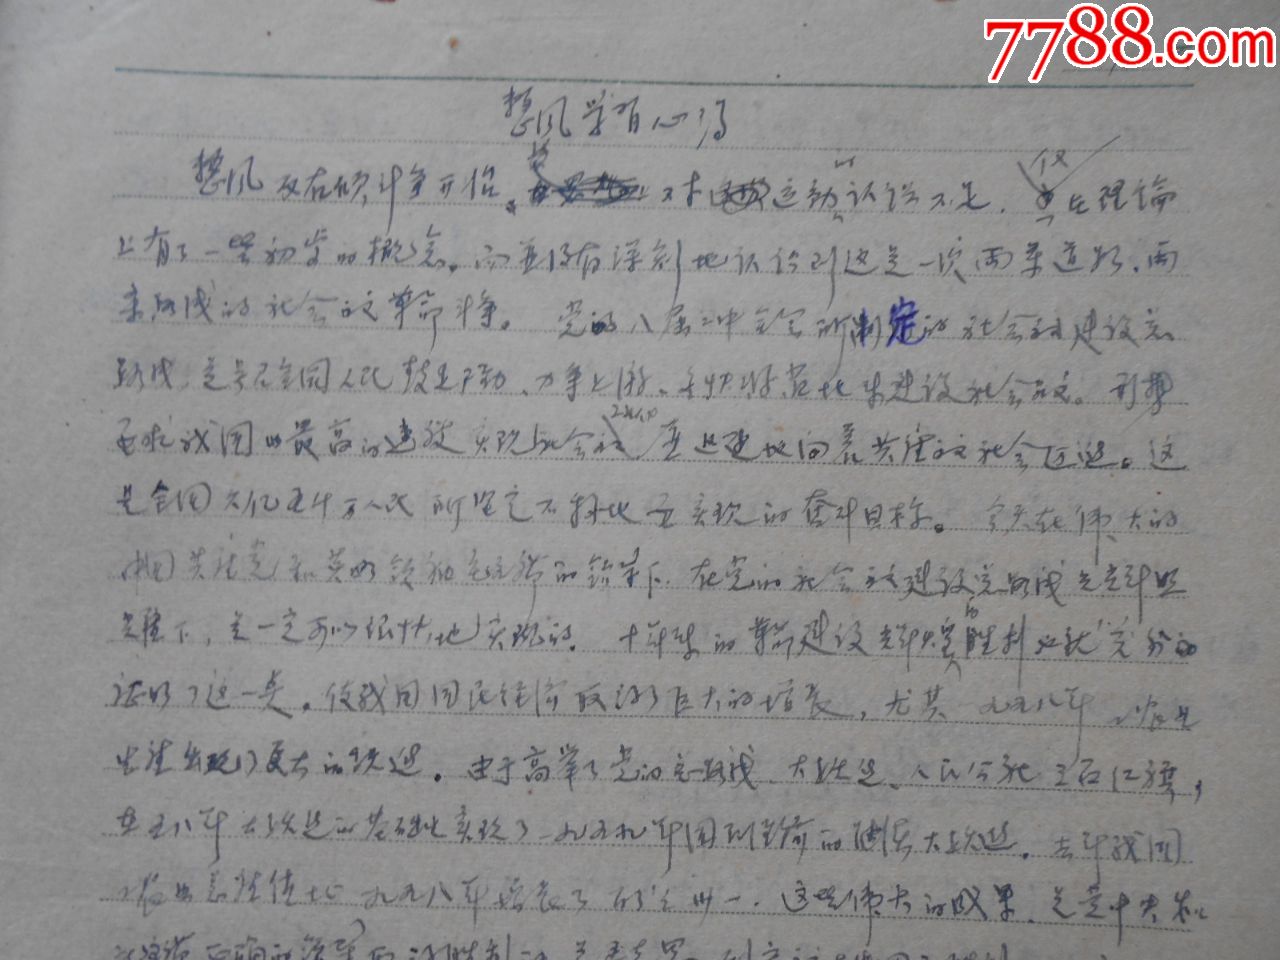 7788.com
整风学习心得
整风反右倾斗争开始。对运动的认识不足，仅在理论
上有了一些初步的概念。而并没有深刻地认识到这是一次两条道路、两
条路线的社会主义革命斗争。党的八届二中全会所制定的社会主义建设总
路线，是号召全国人民鼓足干劲、力争上游、多快好省地来建设社会主义。形势
要求我国以最高的速度实现社会主义，并迅速地向着共产主义社会迈进。这
是全国六亿五千万人民所坚定不移地要实现的奋斗目标。今天在伟大的
中国共产党和英明领袖毛主席的领导下，在党的社会主义建设总路线光辉照
耀下，是一定可以很快地实现的。十年来的革命建设的辉煌胜利必就充分的
证明了这一点。使我国国民经济取得了巨大的增长，尤其一九五八年工农业
生产出现了更大的跃进。由于高举了党的总路线、大跃进、人民公社三面红旗，
在五八年大跃进的基础上实现了一九五九年国民经济的继续大跃进。去年我国
工农业总产值比一九五八年增长了百分之卅一。这些伟大的成果，是党中央和
毛主席正确的领导